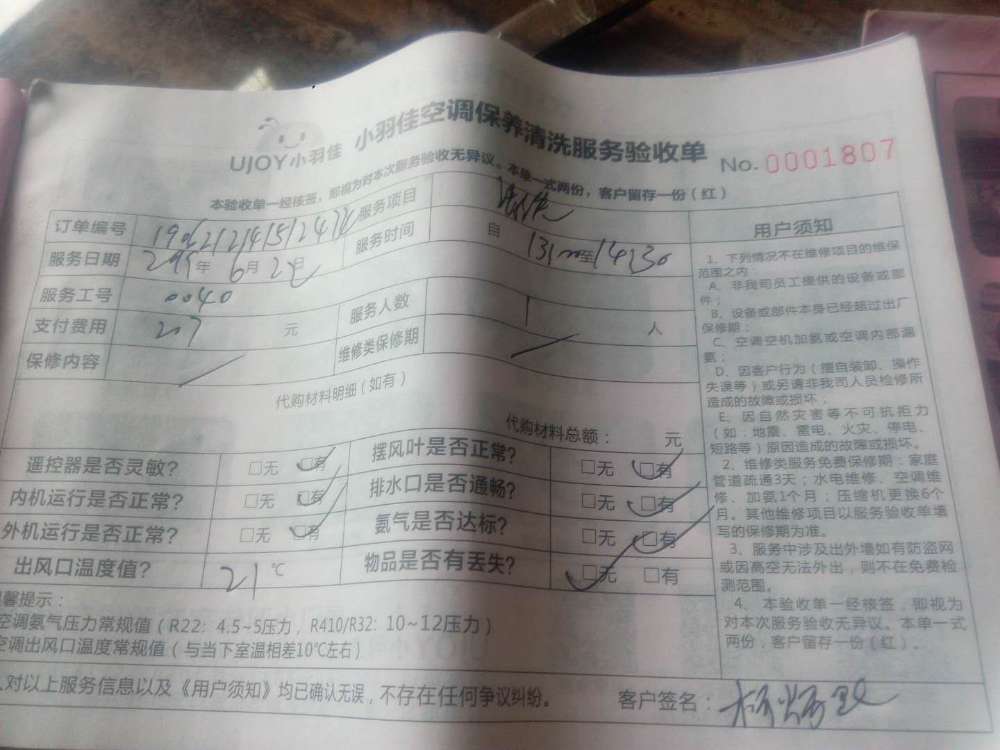 UJOY小羽佳 小羽佳空调保养清洗服务验收单 No. 0001807
本验收单一经核签，即视为对本次服务验收无异议。本单一式两份，客户留存一份（红）
订单编号 服务项目 清洗
服务日期 年 6月2日 服务时间 自 至
服务工号 0040
支付费用 207 元 服务人数 1 人
保修内容 维修类保修期
代购材料明细（如有）
代购材料总额： 元
遥控器是否灵敏？ □无 □有 摆风叶是否正常？ □无 □有
内机运行是否正常？ □无 □有 排水口是否通畅？ □无 □有
外机运行是否正常？ □无 □有 氨气是否达标？ □无 □有
出风口温度值？ 21 ℃ 物品是否有丢失？ □无 □有
馨提示：
空调氨气压力常规值（R22：4.5~5压力，R410/R32：10~12压力）
空调出风口温度常规值（与当下室温相差10℃左右）
人对以上服务信息以及《用户须知》均已确认无误，不存在任何争议纠纷。 客户签名：
用户须知
1、下列情况不在维修项目的维保
范围之内
A、非我司员工提供的设备或部
件；
B、设备或部件本身已经超过出厂
保修期；
C、空调空机加氨或空调内部漏
氨；
D、因客户行为（擅自装卸、操作
失误等）或另请非我司人员检修所
造成的故障或损坏；
E、因自然灾害等不可抗拒力
（如：地震、雷电、火灾、停电、
短路等）原因造成的故障或损坏。
2、维修类服务免费保修期：家庭
管道疏通3天；水电维修、空调维
修、加氨1个月；压缩机更换6个
月。其他维修项目以服务验收单填
写的保修期为准。
3、服务中涉及出外墙如有防盗网
或因高空无法外出，则不在免费检
测范围。
4、本验收单一经核签，即视为
对本次服务验收无异议。本单一式
两份，客户留存一份（红）。